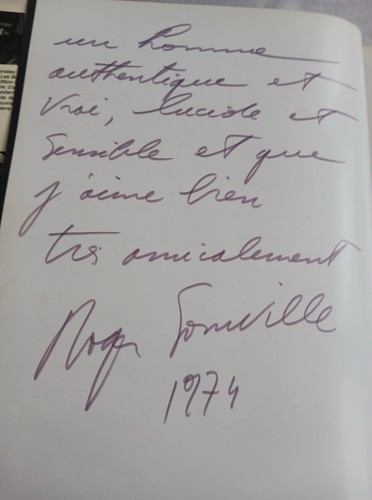 un homme
authentique et
vrai, lucide et
sensible et que
j'aime bien
très amicalement
Roger Somville
1974